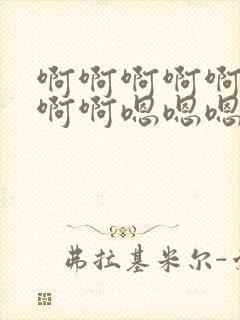 啊啊啊啊啊
啊啊嗯嗯嗯
弗拉基米尔-